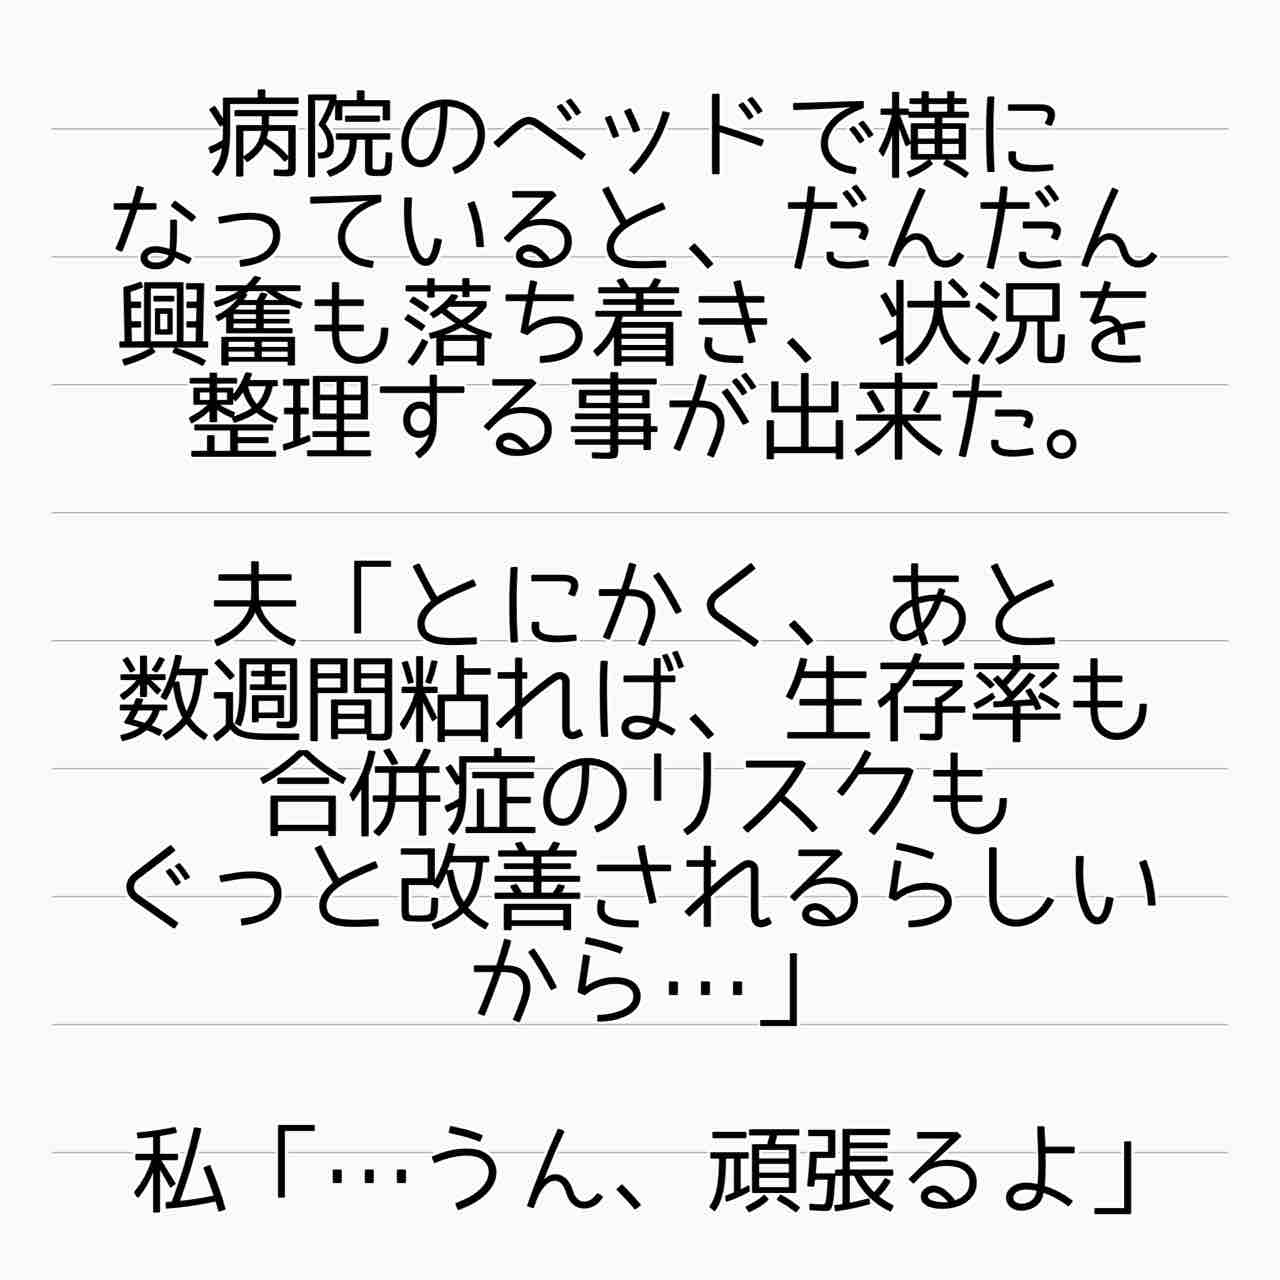 病院のベッドで横に
なっていると、だんだん
興奮も落ち着き、状況を
整理する事が出来た。
夫「とにかく、あと
数週間粘れば、生存率も
合併症のリスクも
ぐっと改善されるらしい
から…」
私「…うん、頑張るよ」